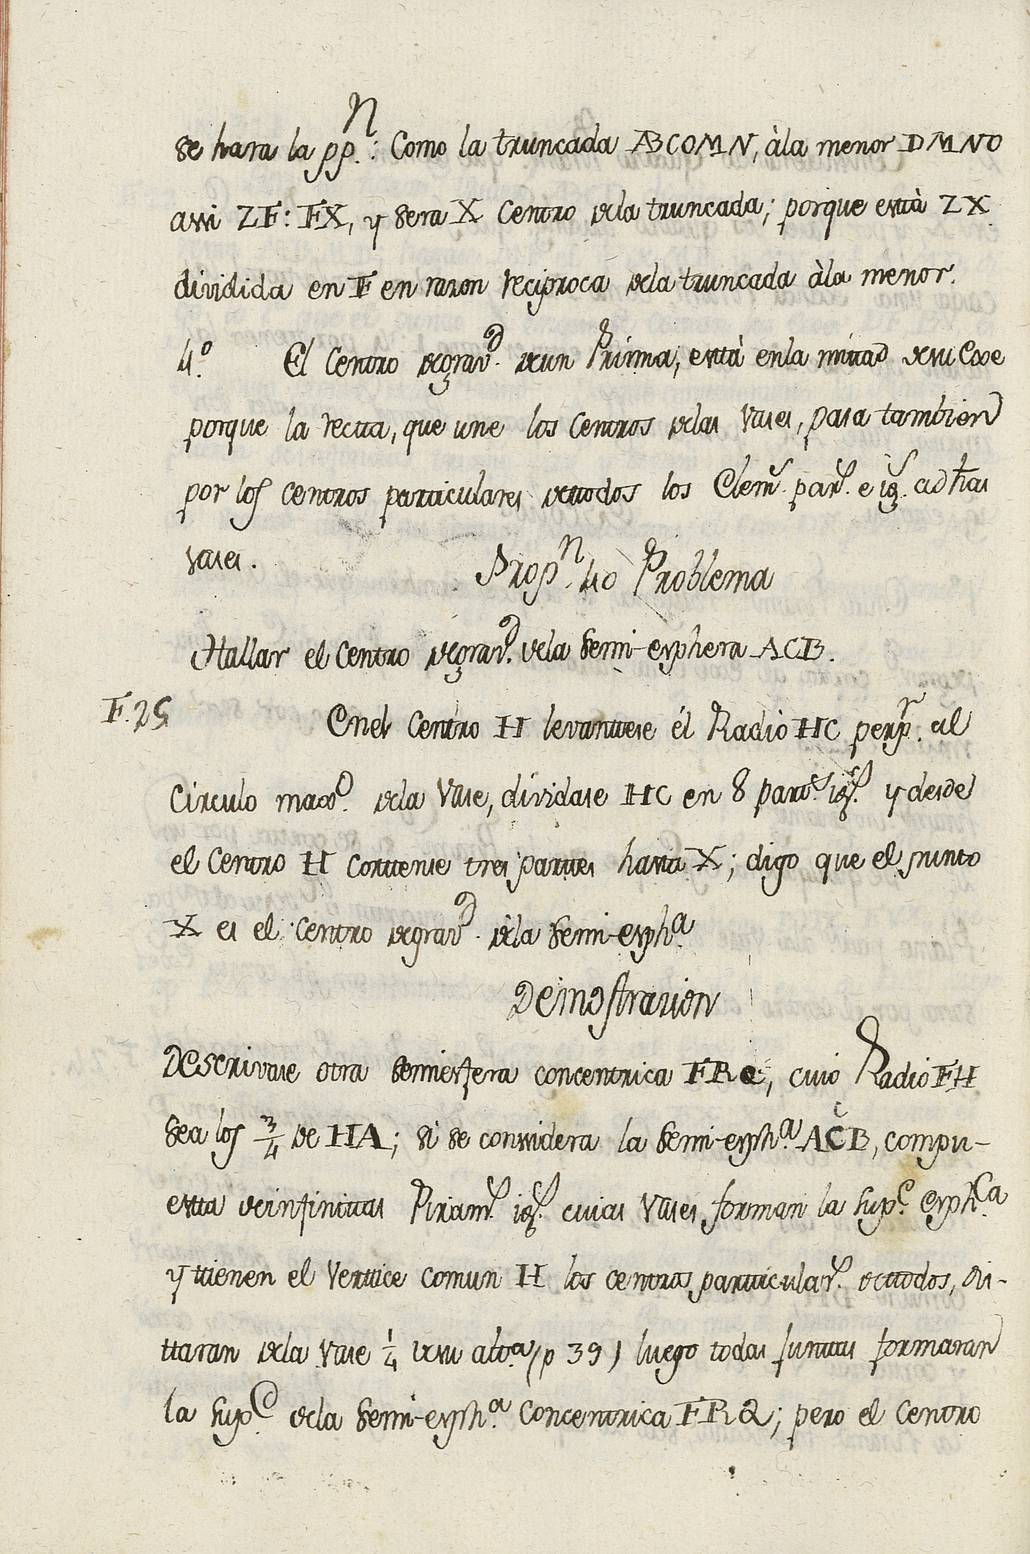 se hara la pp.n: Como la truncada ABCOMN, àla menor DMNO
assi ZF: FX, y sera X Centro dela truncada; porque està ZX
dividida en F en razon reciproca dela truncada àla menor.
4.º El Centro degrav.d deun Prisma, està enla mittad desu Exe
porque la rectta, que une los Centros delas Vases, pasa tambien
por los centros particulares detodos los Elem.s par.s e ig.s adhas
vases.
Prop.n 40 Problema
Hallar el Centro degrav.d dela Semi-esphera ACB.
F. 25
Enel Centro H levantese él Radio HC perp.r al
Circulo max.o dela Vase, dividase HC en 8 part.s ig.s y desde
el Centro H Cortense tres partes hasta X; digo que el punto
X es el Centro degrav.d dela Semi-esph.a
Demostrazion
Descrivase otra Semiesfera concentrica FRQ, cuio Radio FH
sea los 3/4 de HA; si se considera la Semi-esph.a ACB, compu-
esta deinfinitas Piram.s ig.s cuias Vases forman la Sup.e Esph.ca
y ttienen el Vertice comun H los centros particular.s detodos, di-
ttaran dela Vase 1/4 desu alt.a (p 39) luego todas juntas formaran
la Sup.e dela Semi-esph.a Concentrica FRQ; pero el Centro